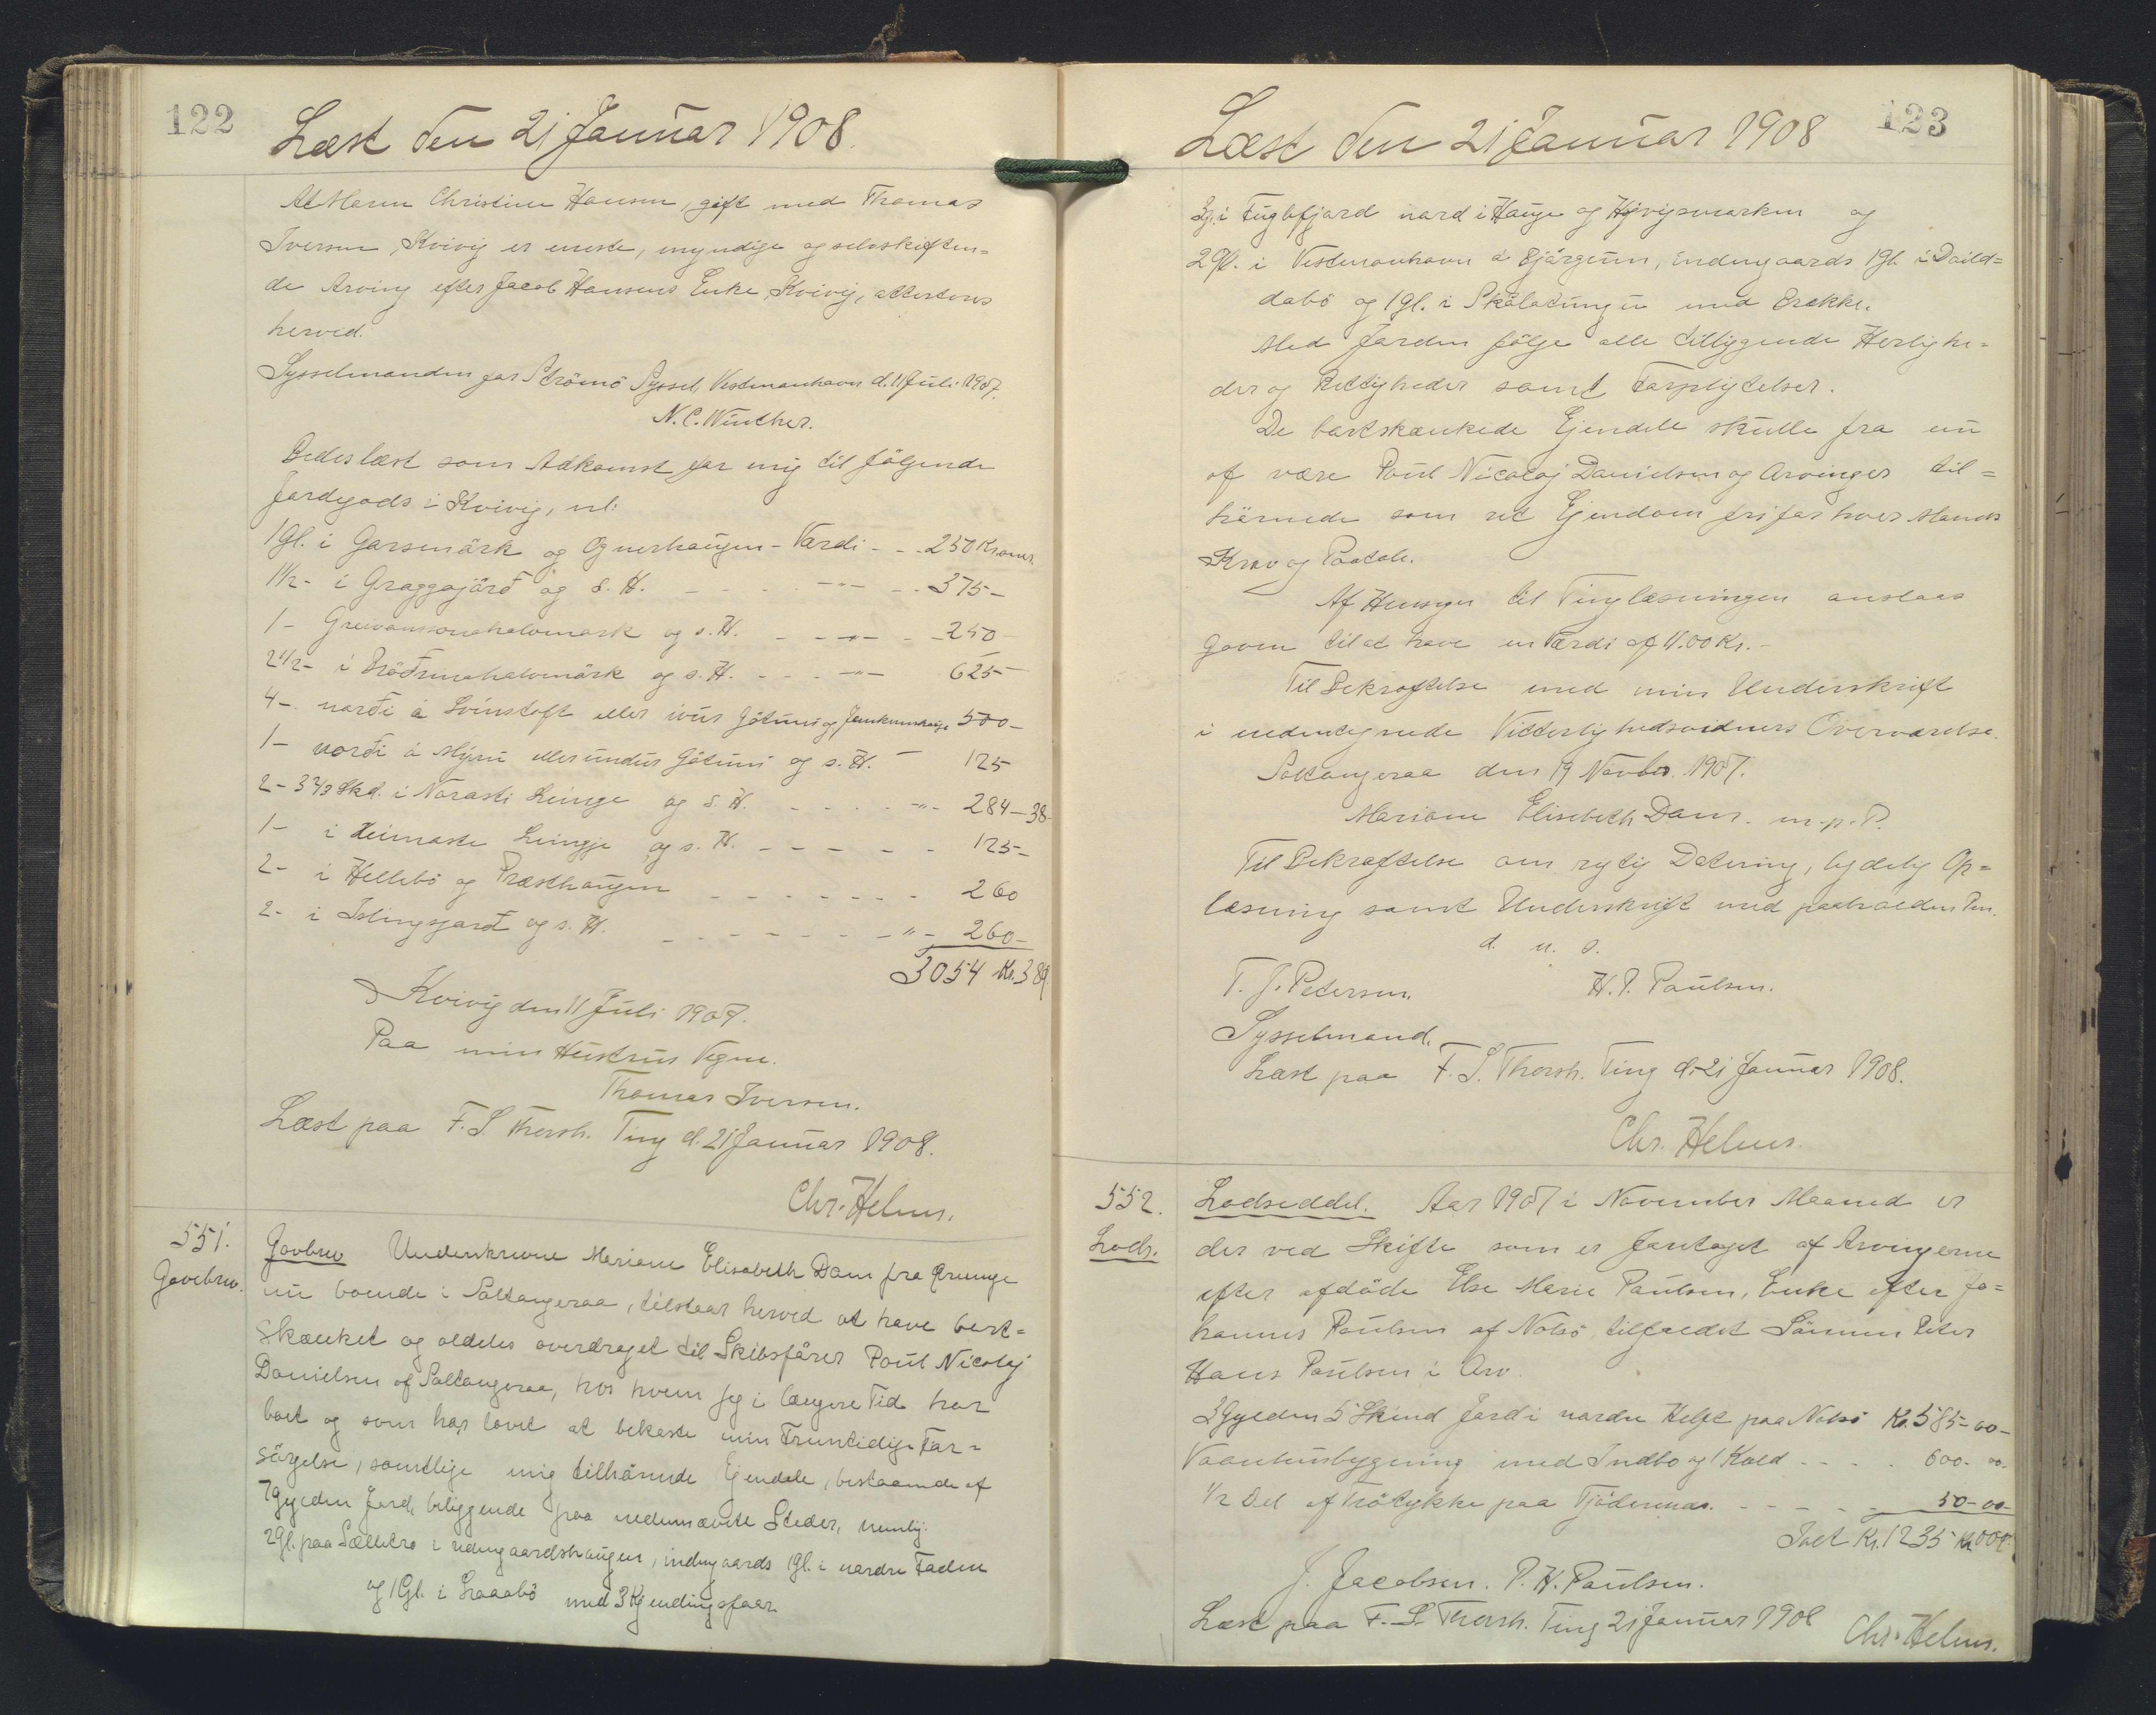 122
Læst den 21 Januar 1908.
At Maren Christine Hansen, gift med Thomas
Iversen, Kvivig er eneste, myndige og selvskiften=
de Arving efter Jacob Hansens Enke, Kvivig, attesteres
herved.
Sysselmanden for Strömö Syssel, Vestmanhavn d. 11 Juli 1907.
N. C. Winther.
Bedes læst som Adkomst for mig til følgende
Jordegods i Kvivig, nl:
1 Gl. i Garsmärk og Ognerhaugen - Værdi - - 250 Kroner.
1 1/2 - i Graggajärð og s. H. - - - - " - - - 375 -
1 - Greivansonahalvmark og s. H. - - - " - - - 250 -
2 1/2 - i Bröðrunahalvmärk og s. H. - - - " - 625 -
4 - norði á Svinstoft eller ivur Götuni og 500 -
1 - norði á Mýru eller undir Götuni og s. H. - 125
2 - 3 2/3 Skd. i Norasti Leinge og s. H. - - - - " - 284 - 38
1 - i Heimaste Leingje og s. H. - - - - - 125 -
2 - i Hellebö og Præsthaugen - - - - - - 260
2 - i Islingsjarð og s. H. - - - - - - " - 260 -
3054 Kr. 38 Ø
Kvivig den 11 Juli 1907.
Paa min Hustrus Vegne.
Thomas Iversen.
Læst paa F. S. Thorsh. Ting d. 21 Januar 1908.
Chr. Helms.
551.
Gavebrev.
Gavbrev Underskrevne Mariane Elisabeth Dam fra
nu boende i Saltangeraa, tilstaar herved at have bort=
skænket og aldeles overdraget til Skibsfører Poul Nicolaj
Danielsen af Saltangeraa, hos hvem jeg i længere Tid har
boet og som har lovet at bekoste min Fremtidige For=
sörgelse, samtlige mig tilhörende Ejendele, bestaaende af
7 Gylden Jord, beliggende paa nedennævnte Steder, nemlig:
2 Gl. paa Selletræ i udengaardshaugen, indengaards 1 Gl. i nordre Faden
og 1 Gl. i Laaabö med 3 Kjendingsfaar
123
Læst den 21 Januar 1908
3 Gl. i Fuglefjord nord i Hauge og og
2 Gl. i Vestmanhavn á Bjärgeum, indengaards 1 Gl. i Daild=
dabö og 1 Gl. i Skálatungu med Brække.
Med Jorden følge alle tilliggende Herlighe=
der og Rettigheder samt Forpligtelser.
De bortskænkede Ejendele skulle fra nu
af være Poul Nicolaj Danielsen og Arvinger til=
hörende som ret Ejendom fri for hver Mands
Krav og Paatale.
Af Hensyn til Tinglæsningen anslaas
Gaven til at have en Værdi af 1100 Kr. -
Til Bekræftelse med min Underskrift
i undertegnede Vitterlighedsvidners Overværelse.
Saltangeraa den 19 Novbr. 1907.
Mariane Elisebeth Dam. m. p. P.
Til Bekræftelse om rigtig Datering, lydelig Op=
læsning samt Underskrift med paaholden Pen.
d. u. s.
T. J. Petersen. H. P. Paulsen.
Sysselmand.
Læst paa F. S. Thorsh. Ting d. 21 Januar 1908.
Chr. Helms.
552.
Lods.
Lodseddel. Aar 1907 i November Maaned er
der ved Skifte som er foretaget af Arvingerne
efter afdöde Else Marie Paulsen, Enke efter Jo=
hannes Poulsen af Nolsö tilfaldet Sönnen Peter
Hans Poulsen i Arv.
3 Gylden 5 Skind Jord i nordre Helft paa Nolsö Kr. 585 - 00 -
Vaaenhusbygning med Indbo og 1 Kald - - - - 600 - 00.
1/2 Del af Tröstykke paa Tjödernes. - - - - - 50 - 00 -
Ialt Kr. 1235 Kr 00 Ø
J. Jacobsen. P. H. Paulsen.
Læst paa F. S. Thorsh. Ting 21 Januar 1908 Chr. Helms.